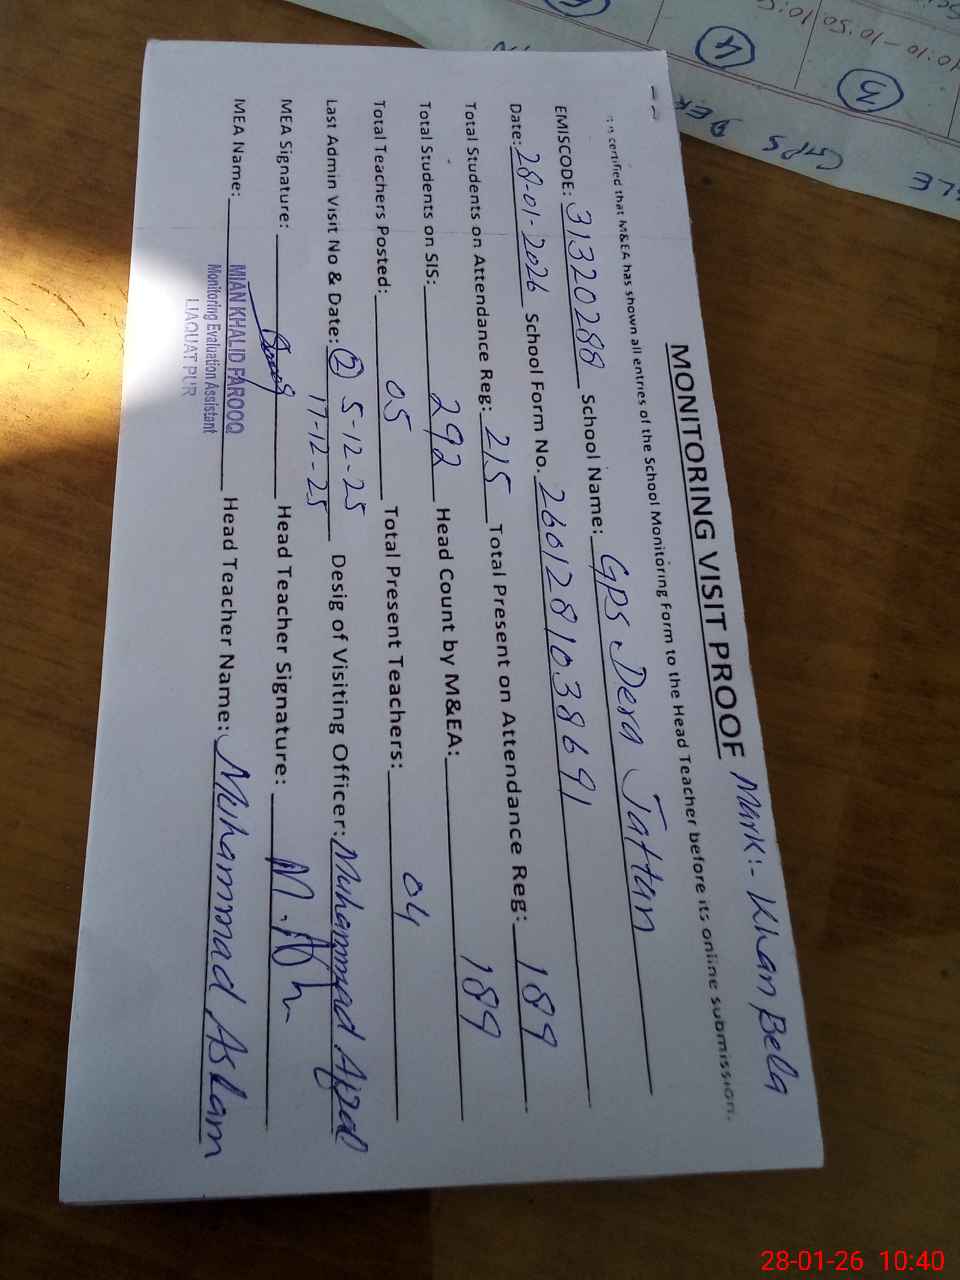 MONITORING VISIT PROOF Mark:- Khan Bela
certified that M&EA has shown all entries of the School Monitoring Form to the Head Teacher before its online submission.
EMISCODE: 31320288 School Name: GPS Dera Jattan
Date: 28-01-2026 School Form No. 2601281038691
Total Students on Attendance Reg: 215 Total Present on Attendance Reg: 189
Total Students on SIS: 292 Head Count by M&EA: 189
Total Teachers Posted: 05 Total Present Teachers: 04
Last Admin Visit No & Date: 2 5-12-25 Desig of Visiting Officer: Muhammad Afzal
17-12-25
MEA Signature: Head Teacher Signature:
MEA Name: MIAN KHALID FAROOQ Head Teacher Name: Muhammad Aslam
Monitoring Evaluation Assistant
LIAQUAT PUR
10:10-10:50
3
4
GPS DER
28-01-26 10:40